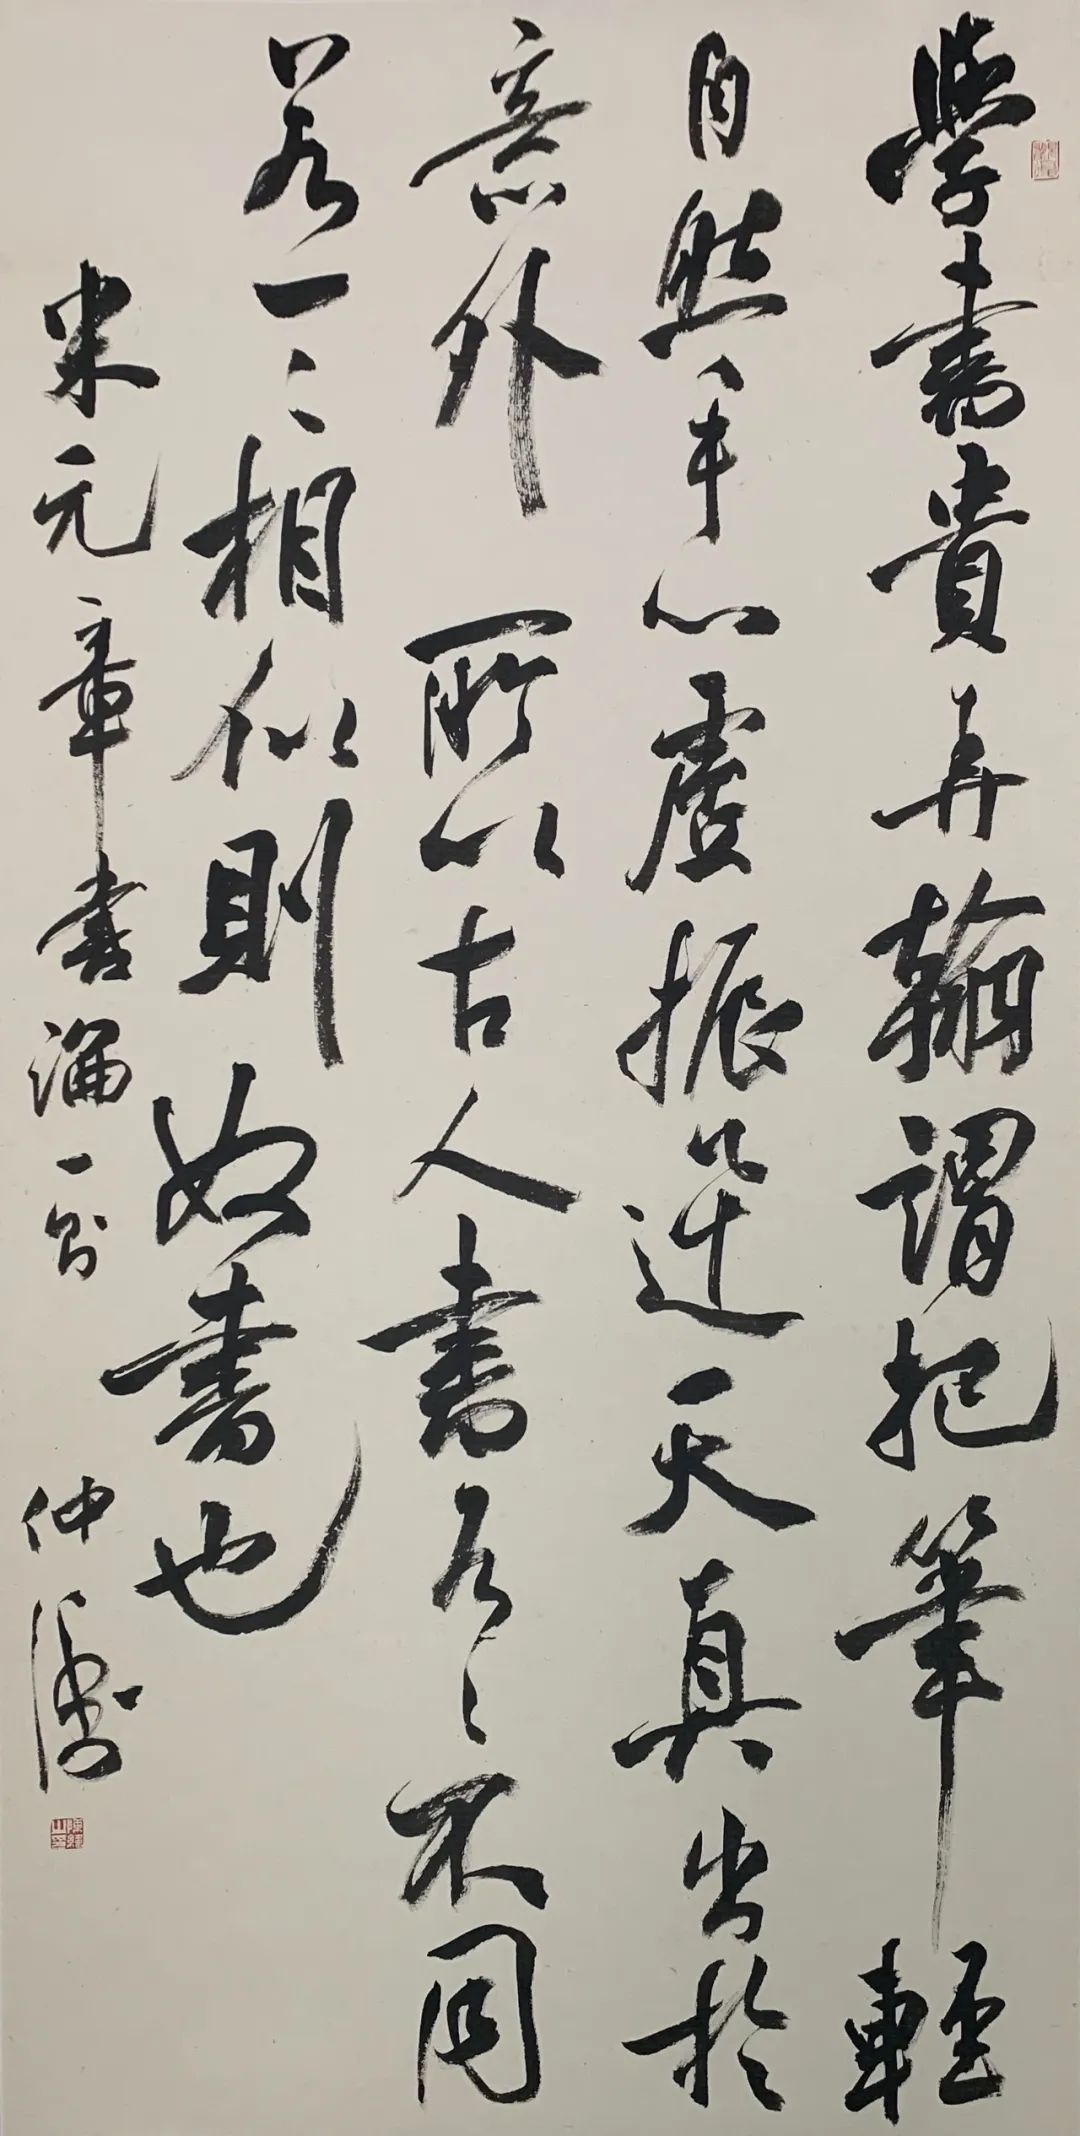 學書貴弄翰謂把筆輕
自然手心虛振迅天真出於
意外所以古人書各々不同
若一々相似則奴書也
米元章書論一則
仲